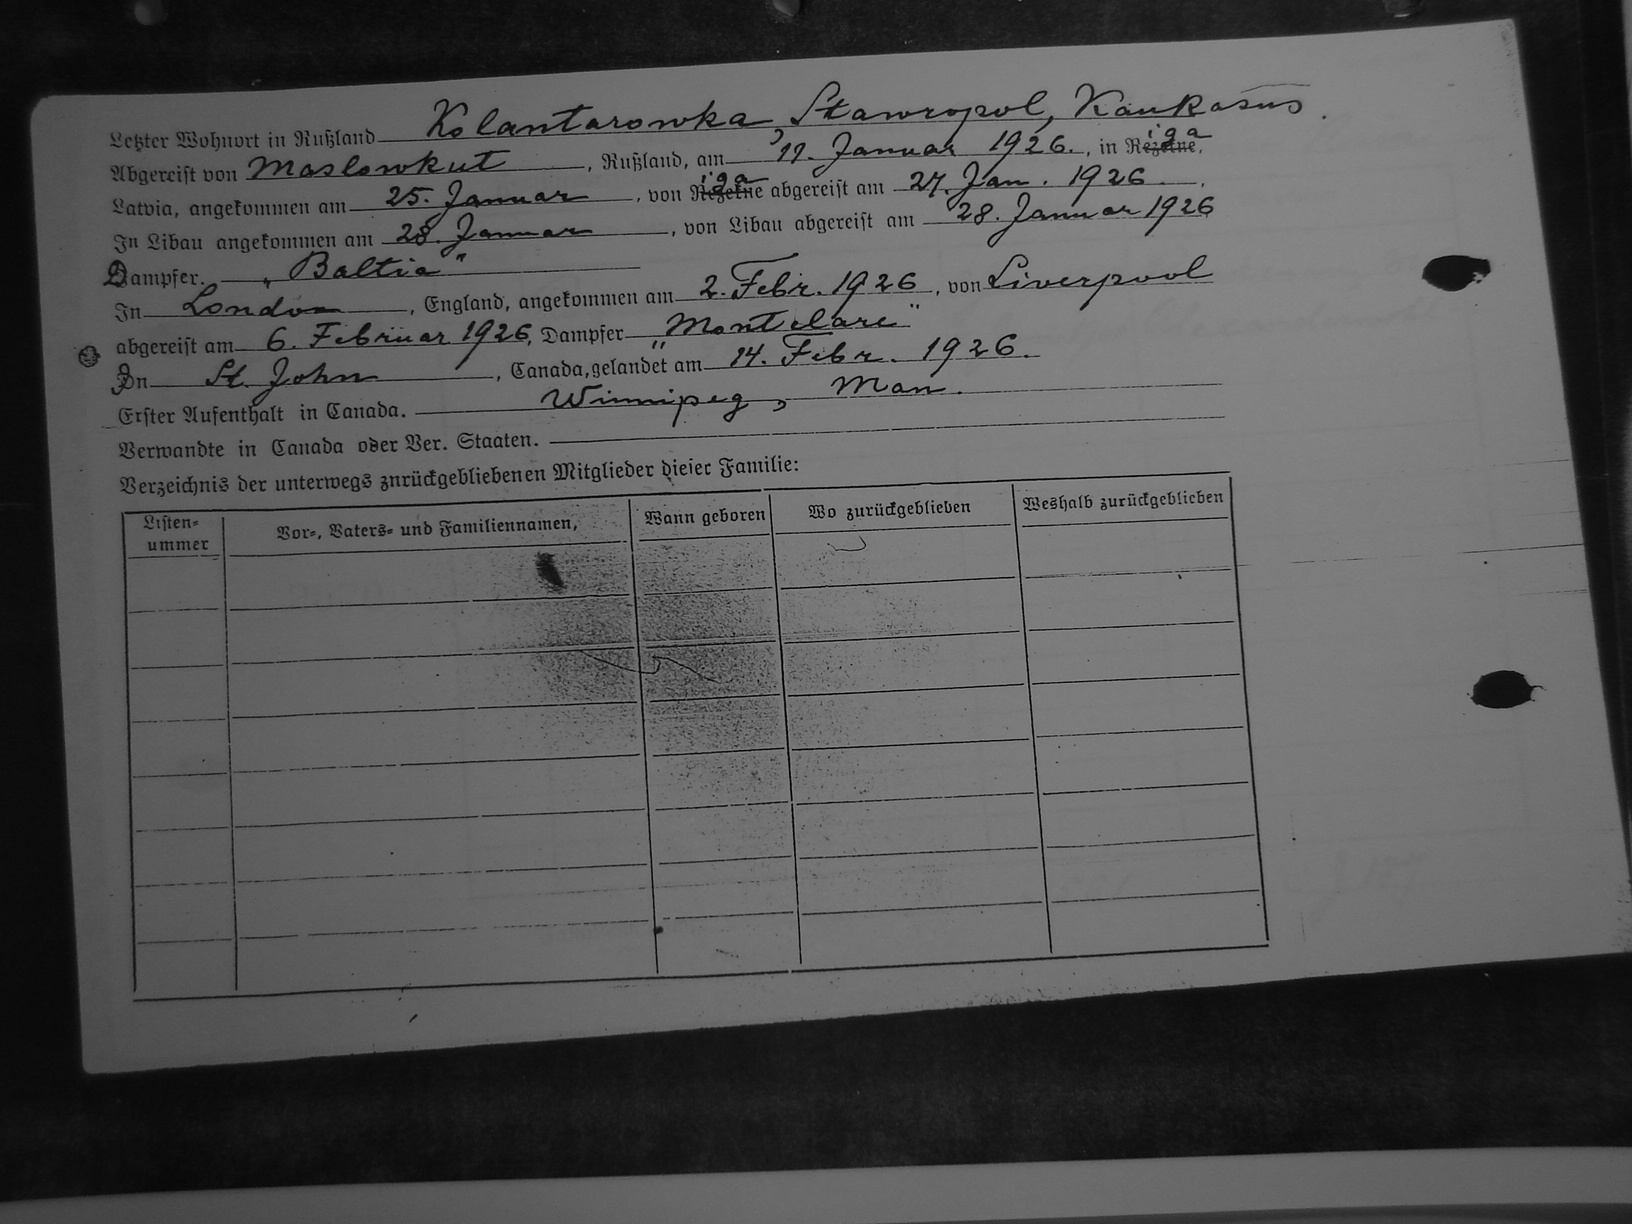 Letzter Wohnort in Rußland Kolantarowka, Stawropol, Kaukasus.
Abgereist von Maslowkut, Rußland, am 19. Januar 1926., in Riga,
Latvia, angekommen am 25. Januar, von Riga abgereist am 27. Jan. 1926.
In Libau angekommen am 28. Januar, von Libau abgereist am 28. Januar 1926
Dampfer. „Baltia“
In London, England, angekommen am 2. Febr. 1926, von Liverpool
abgereist am 6. Februar 1926, Dampfer „Montclare“
In St. John, Canada, gelandet am 14. Febr. 1926.
Erster Aufenthalt in Canada. Winnipeg, Man.
Verwandte in Canada oder Ver. Staaten.
Verzeichnis der unterwegs znrückgebliebenen Mitglieder dieier Familie:
Listen-ummer Vor-, Vaters- und Familiennamen, Wann geboren Wo zurückgeblieben Weshalb zurückgeblieben